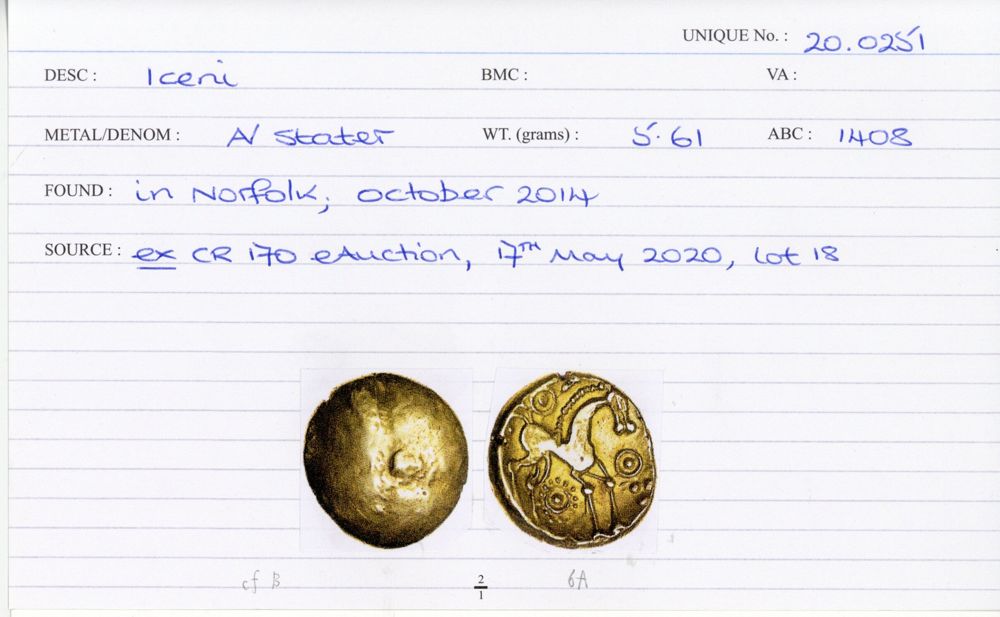 UNIQUE No. : 20.0251
DESC : Iceni BMC : VA :
METAL/DENOM : AV Stater WT. (grams) : 5.61 ABC : 1408
FOUND : in Norfolk, october 2014
SOURCE : ex CR 170 eAuction, 17TH May 2020, Lot 18
cf B 2/1 6A